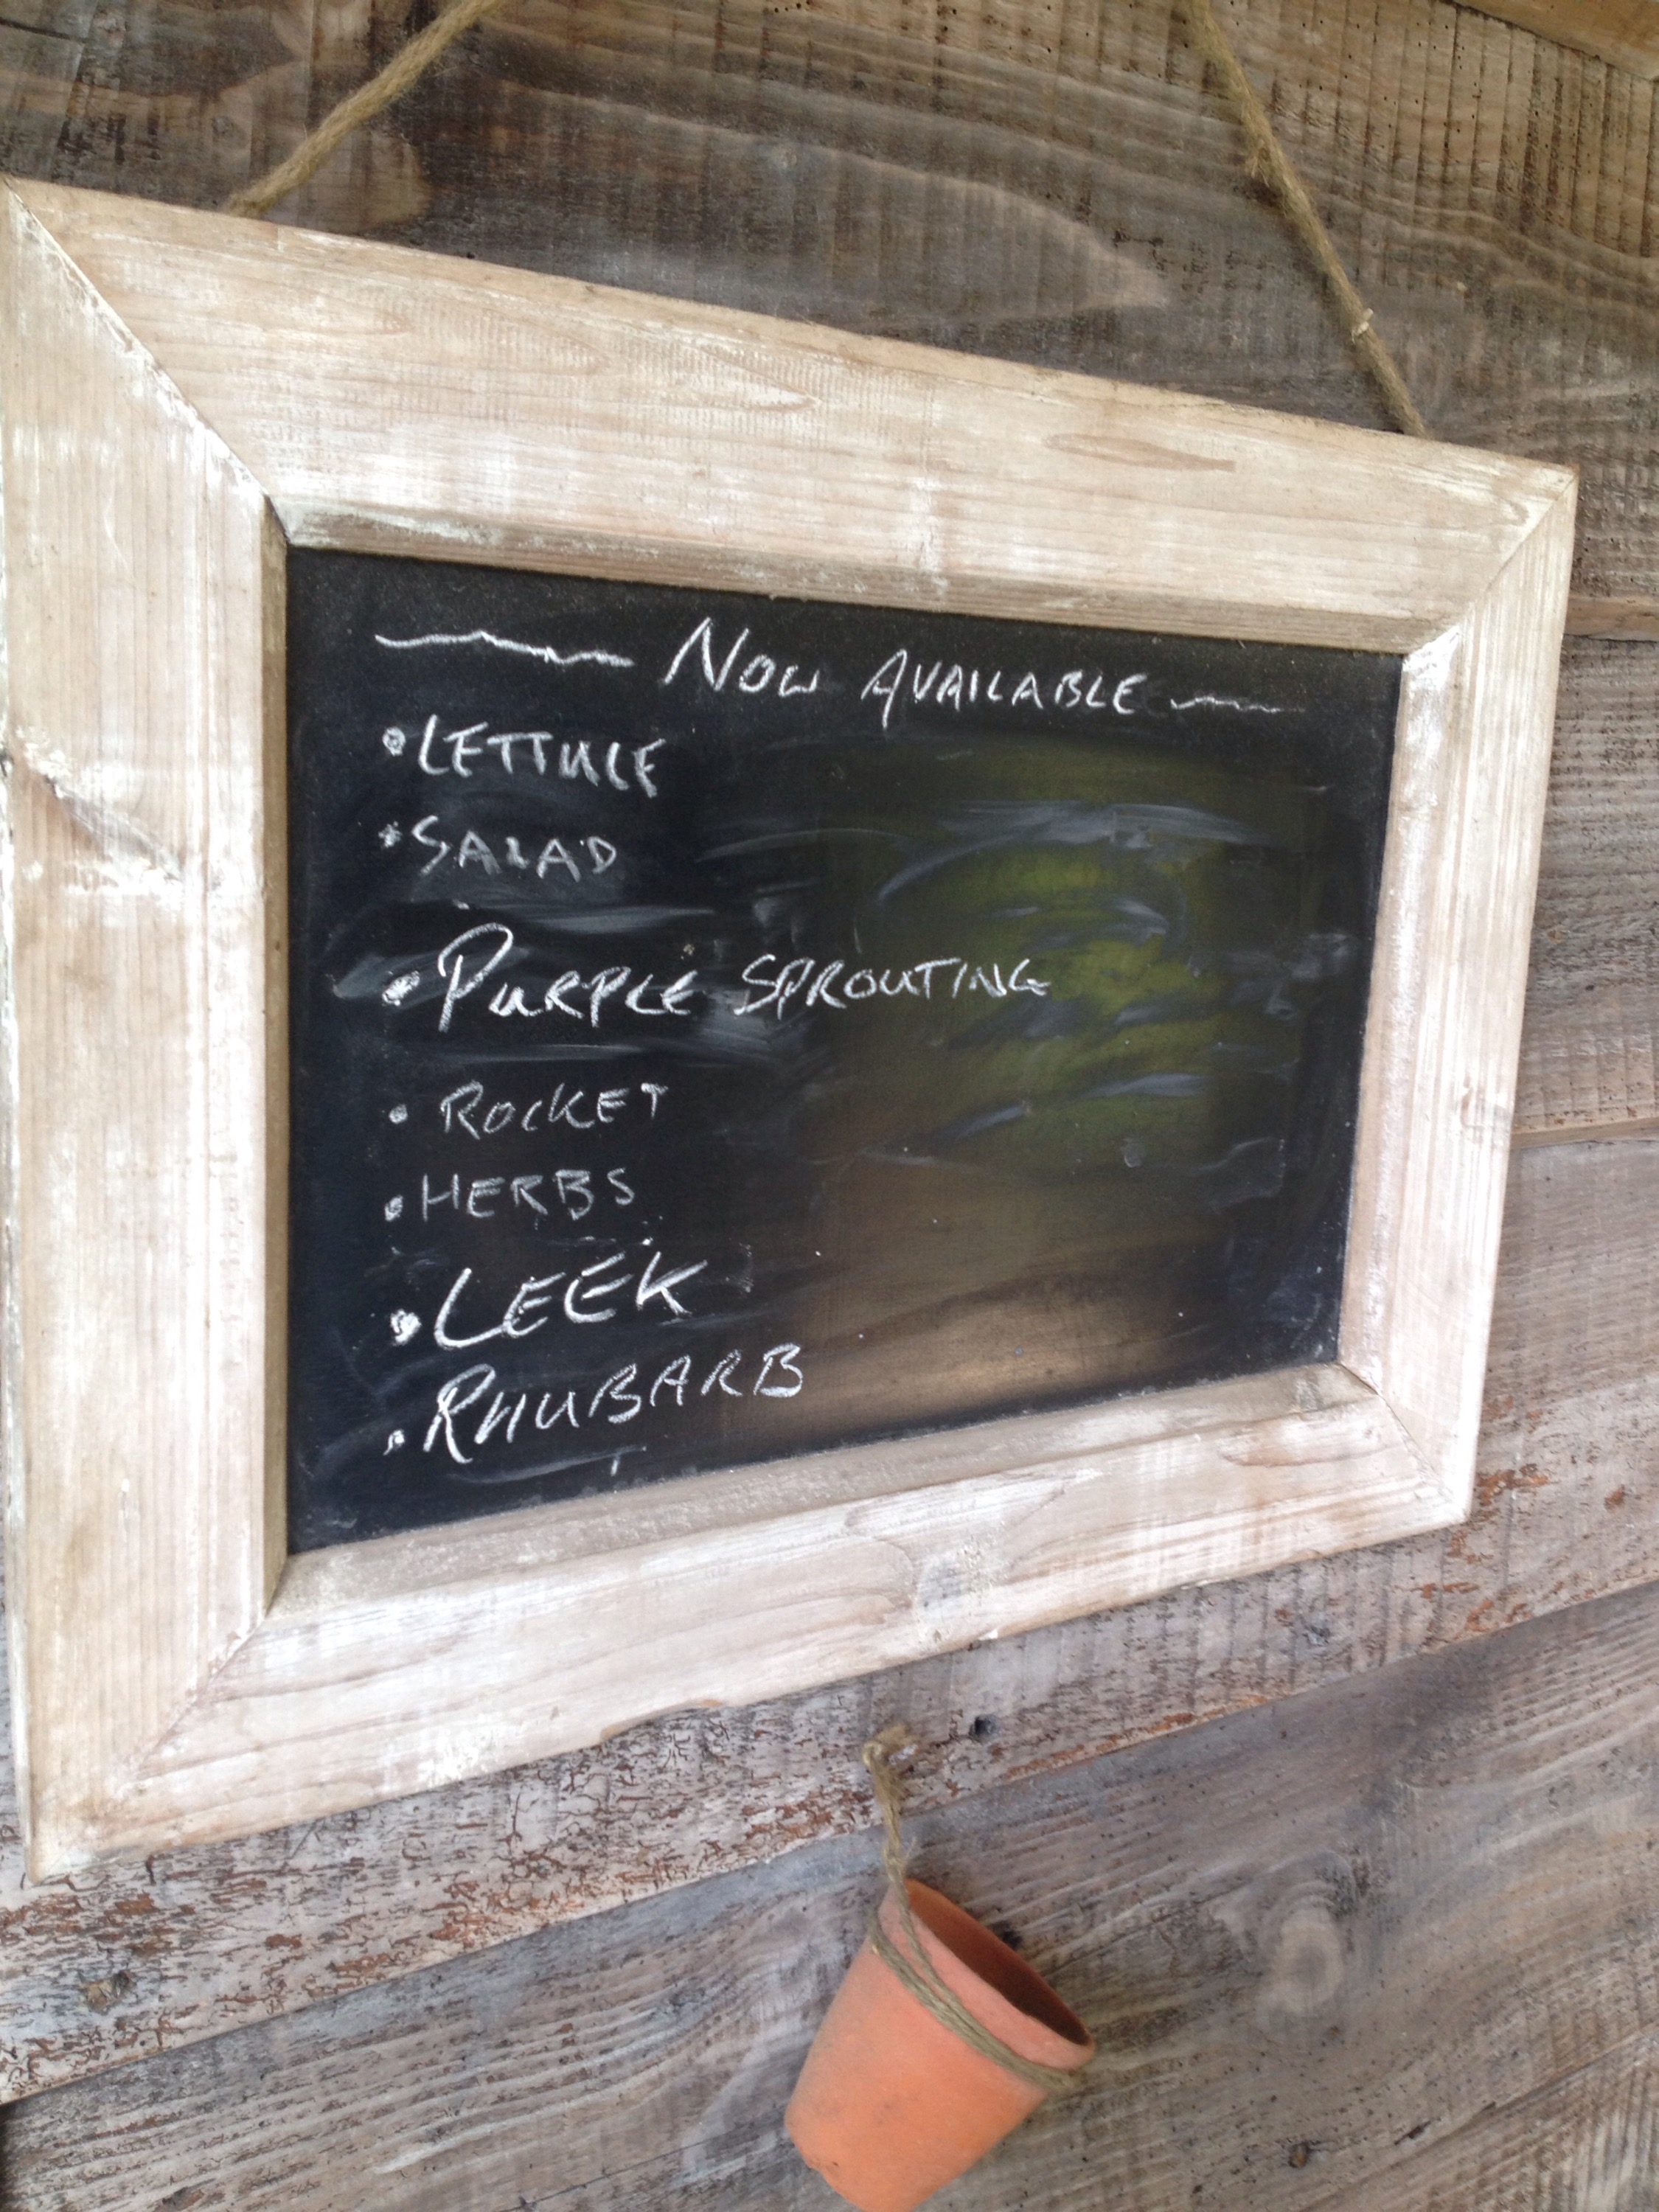 NOW AVAILABLE
• LETTUCE
• SALAD
• PURPLE SPROUTING
• ROCKET
• HERBS
• LEEK
• RHUBARB